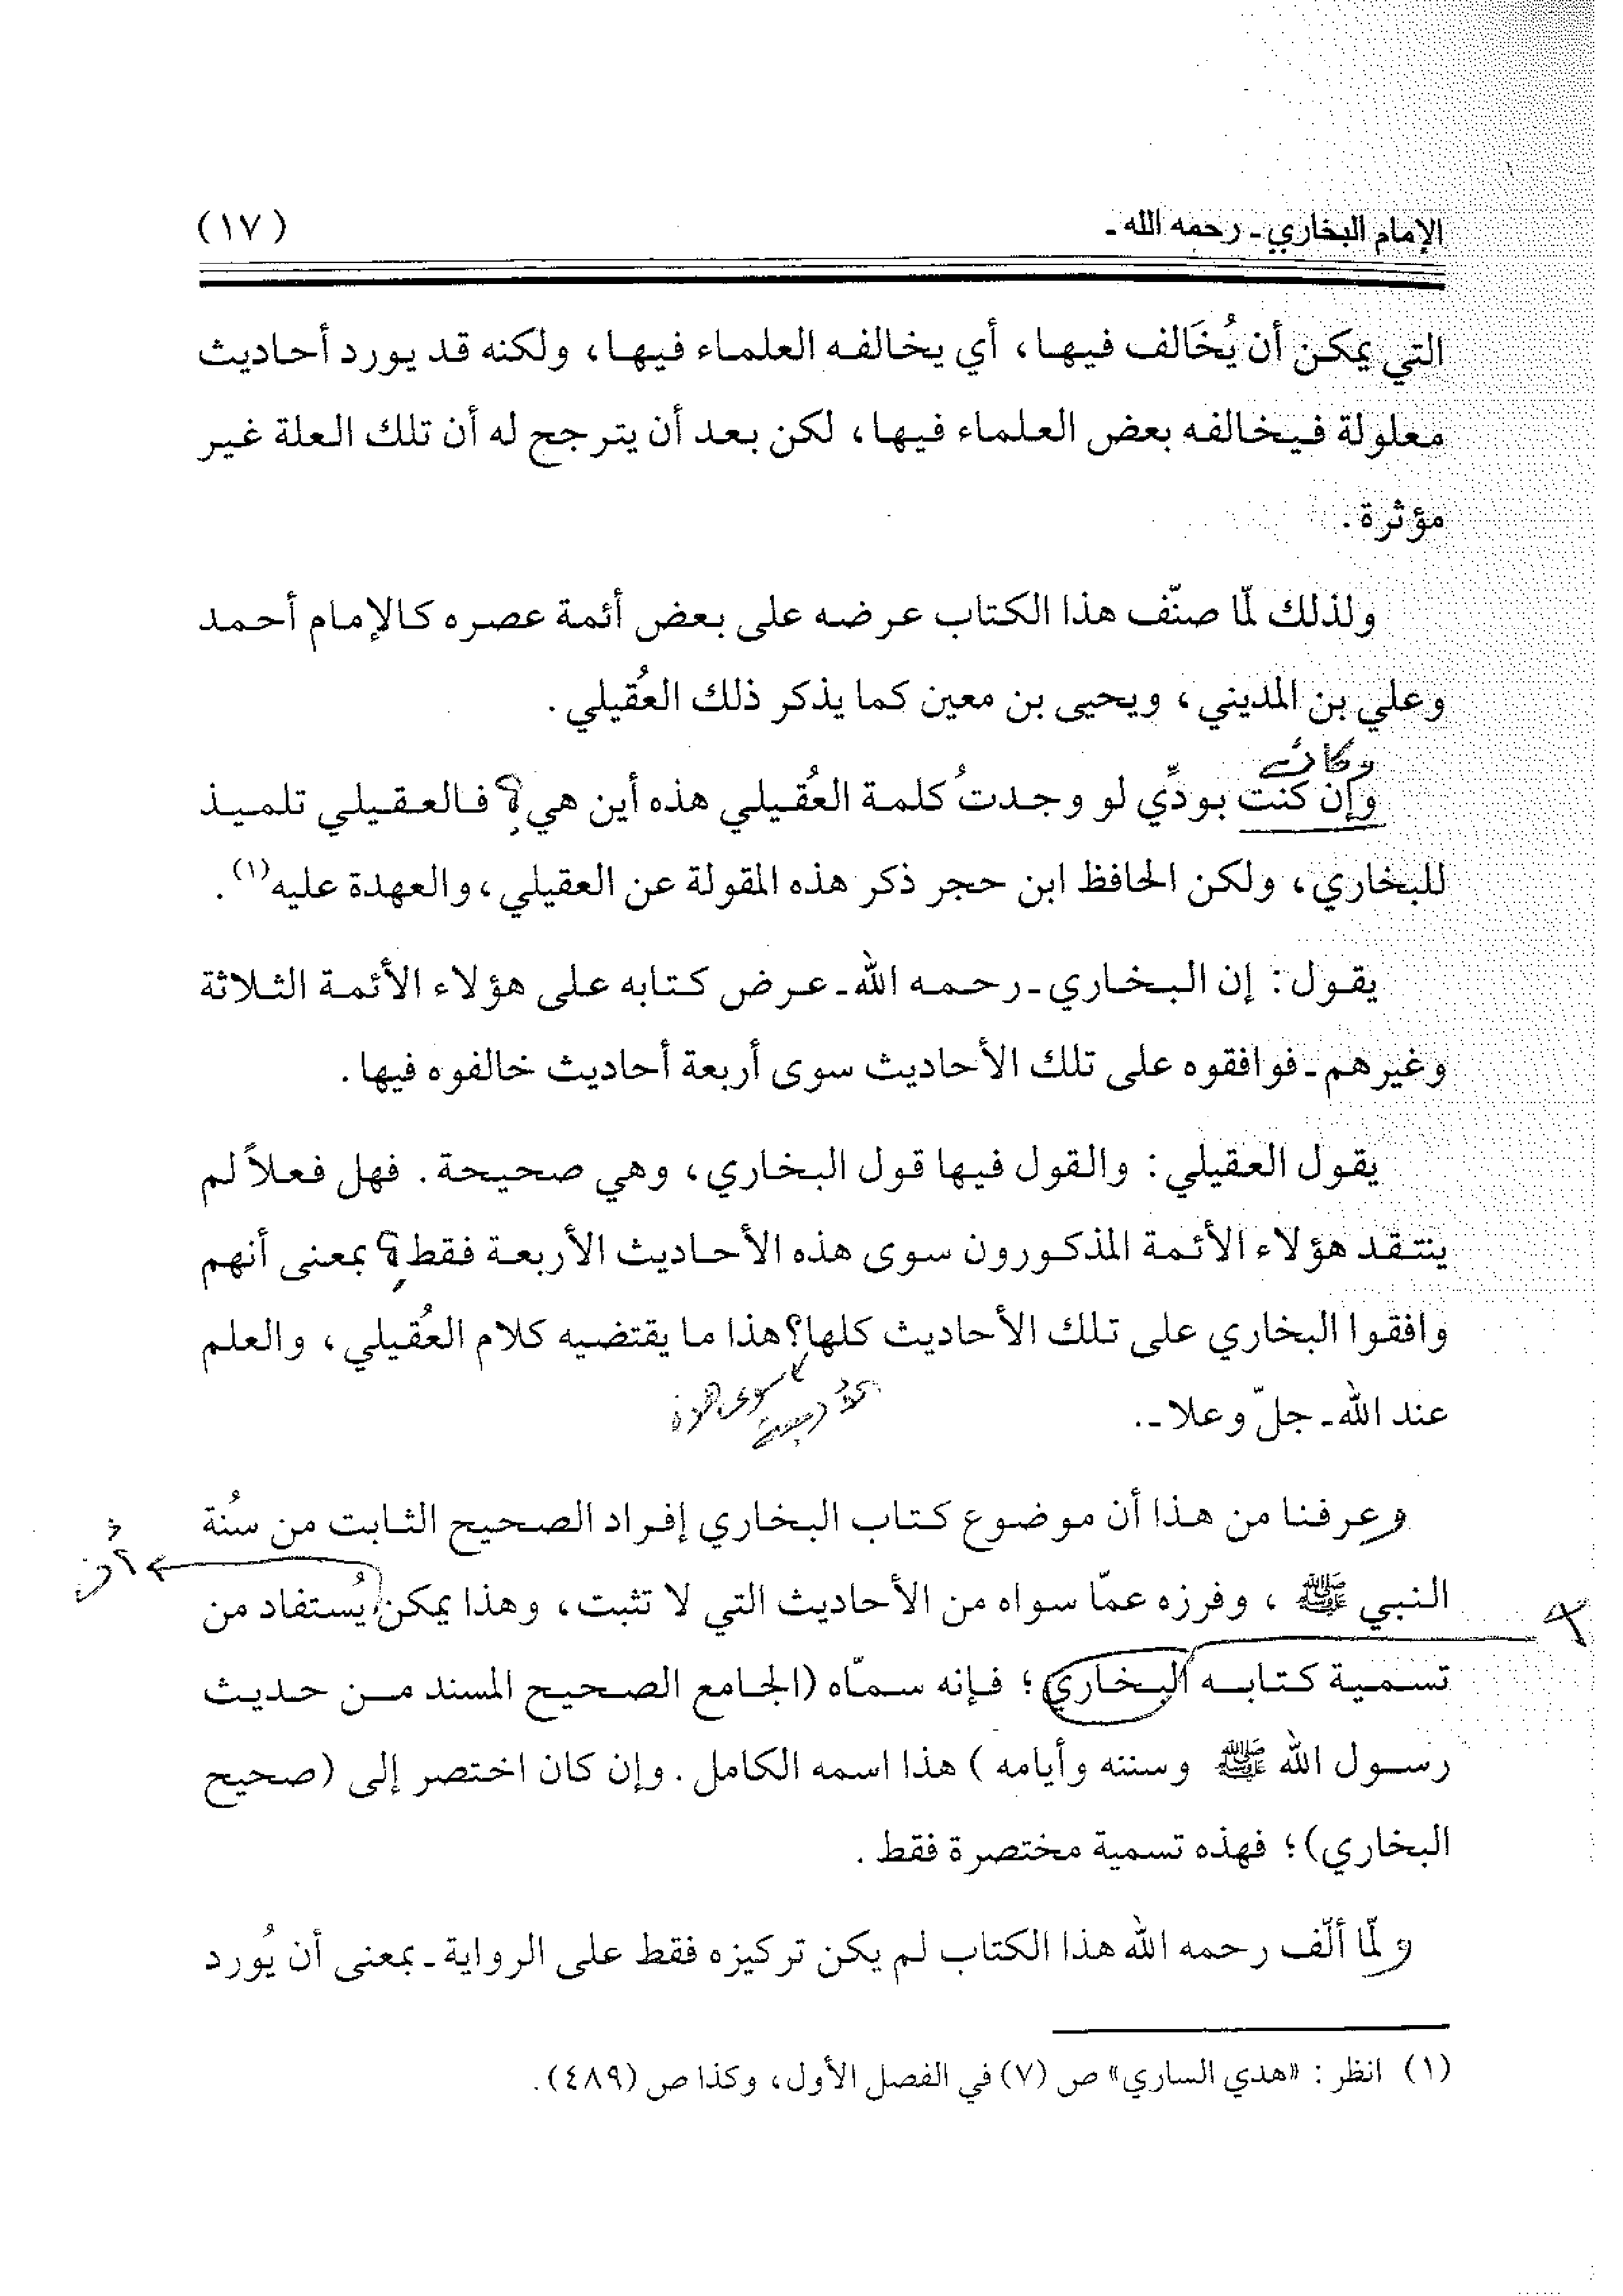 الإمام البخاري ـ رحمه الله ـ
(١٧)
التي يمكن أن يُخَالف فيها، أي يخالفه العلماء فيها، ولكنه قد يورد أحاديث
معلولة فيخالفه بعض العلماء فيها، لكن بعد أن يترجح له أن تلك العلة غير
مؤثرة.
ولذلك لمّا صنّف هذا الكتاب عرضه على بعض أئمة عصره كالإمام أحمد
وعلي بن المديني، ويحيى بن معين كما يذكر ذلك العُقيلي.
وكان
وإن كنت بودِّي لو وجدتُ كلمة العُقيلي هذه أين هي؟ فالعقيلي تلميذ
للبخاري، ولكن الحافظ ابن حجر ذكر هذه المقولة عن العقيلي، والعهدة عليه(١).
يقول: إن البخاري ـ رحمه الله ـ عرض كتابه على هؤلاء الأئمة الثلاثة
وغيرهم ـ فوافقوه على تلك الأحاديث سوى أربعة أحاديث خالفوه فيها.
يقول العقيلي: والقول فيها قول البخاري، وهي صحيحة. فهل فعلاً لم
ينتقد هؤلاء الأئمة المذكورون سوى هذه الأحاديث الأربعة فقط؟ بمعنى أنهم
وافقوا البخاري على تلك الأحاديث كلها؟ هذا ما يقتضيه كلام العُقيلي، والعلم
سوى هذه
الأربعة
عند الله ـ جلّ وعلا ـ.
وعرفنا من هذا أن موضوع كتاب البخاري إفراد الصحيح الثابت من سُنة
النبي ﷺ، وفرزه عمّا سواه من الأحاديث التي لا تثبت، وهذا يمكن يُستفاد من
أن
تسمية كتابه البخاري؛ فإنه سمّاه (الجامع الصحيح المسند من حديث
رسول الله ﷺ وسننه وأيامه) هذا اسمه الكامل. وإن كان اختصر إلى (صحيح
البخاري)؛ فهذه تسمية مختصرة فقط.
ولمّا ألّف رحمه الله هذا الكتاب لم يكن تركيزه فقط على الرواية ـ بمعنى أن يُورد
(١) انظر: «هدي الساري» ص (٧) في الفصل الأول، وكذا ص (٤٨٩).